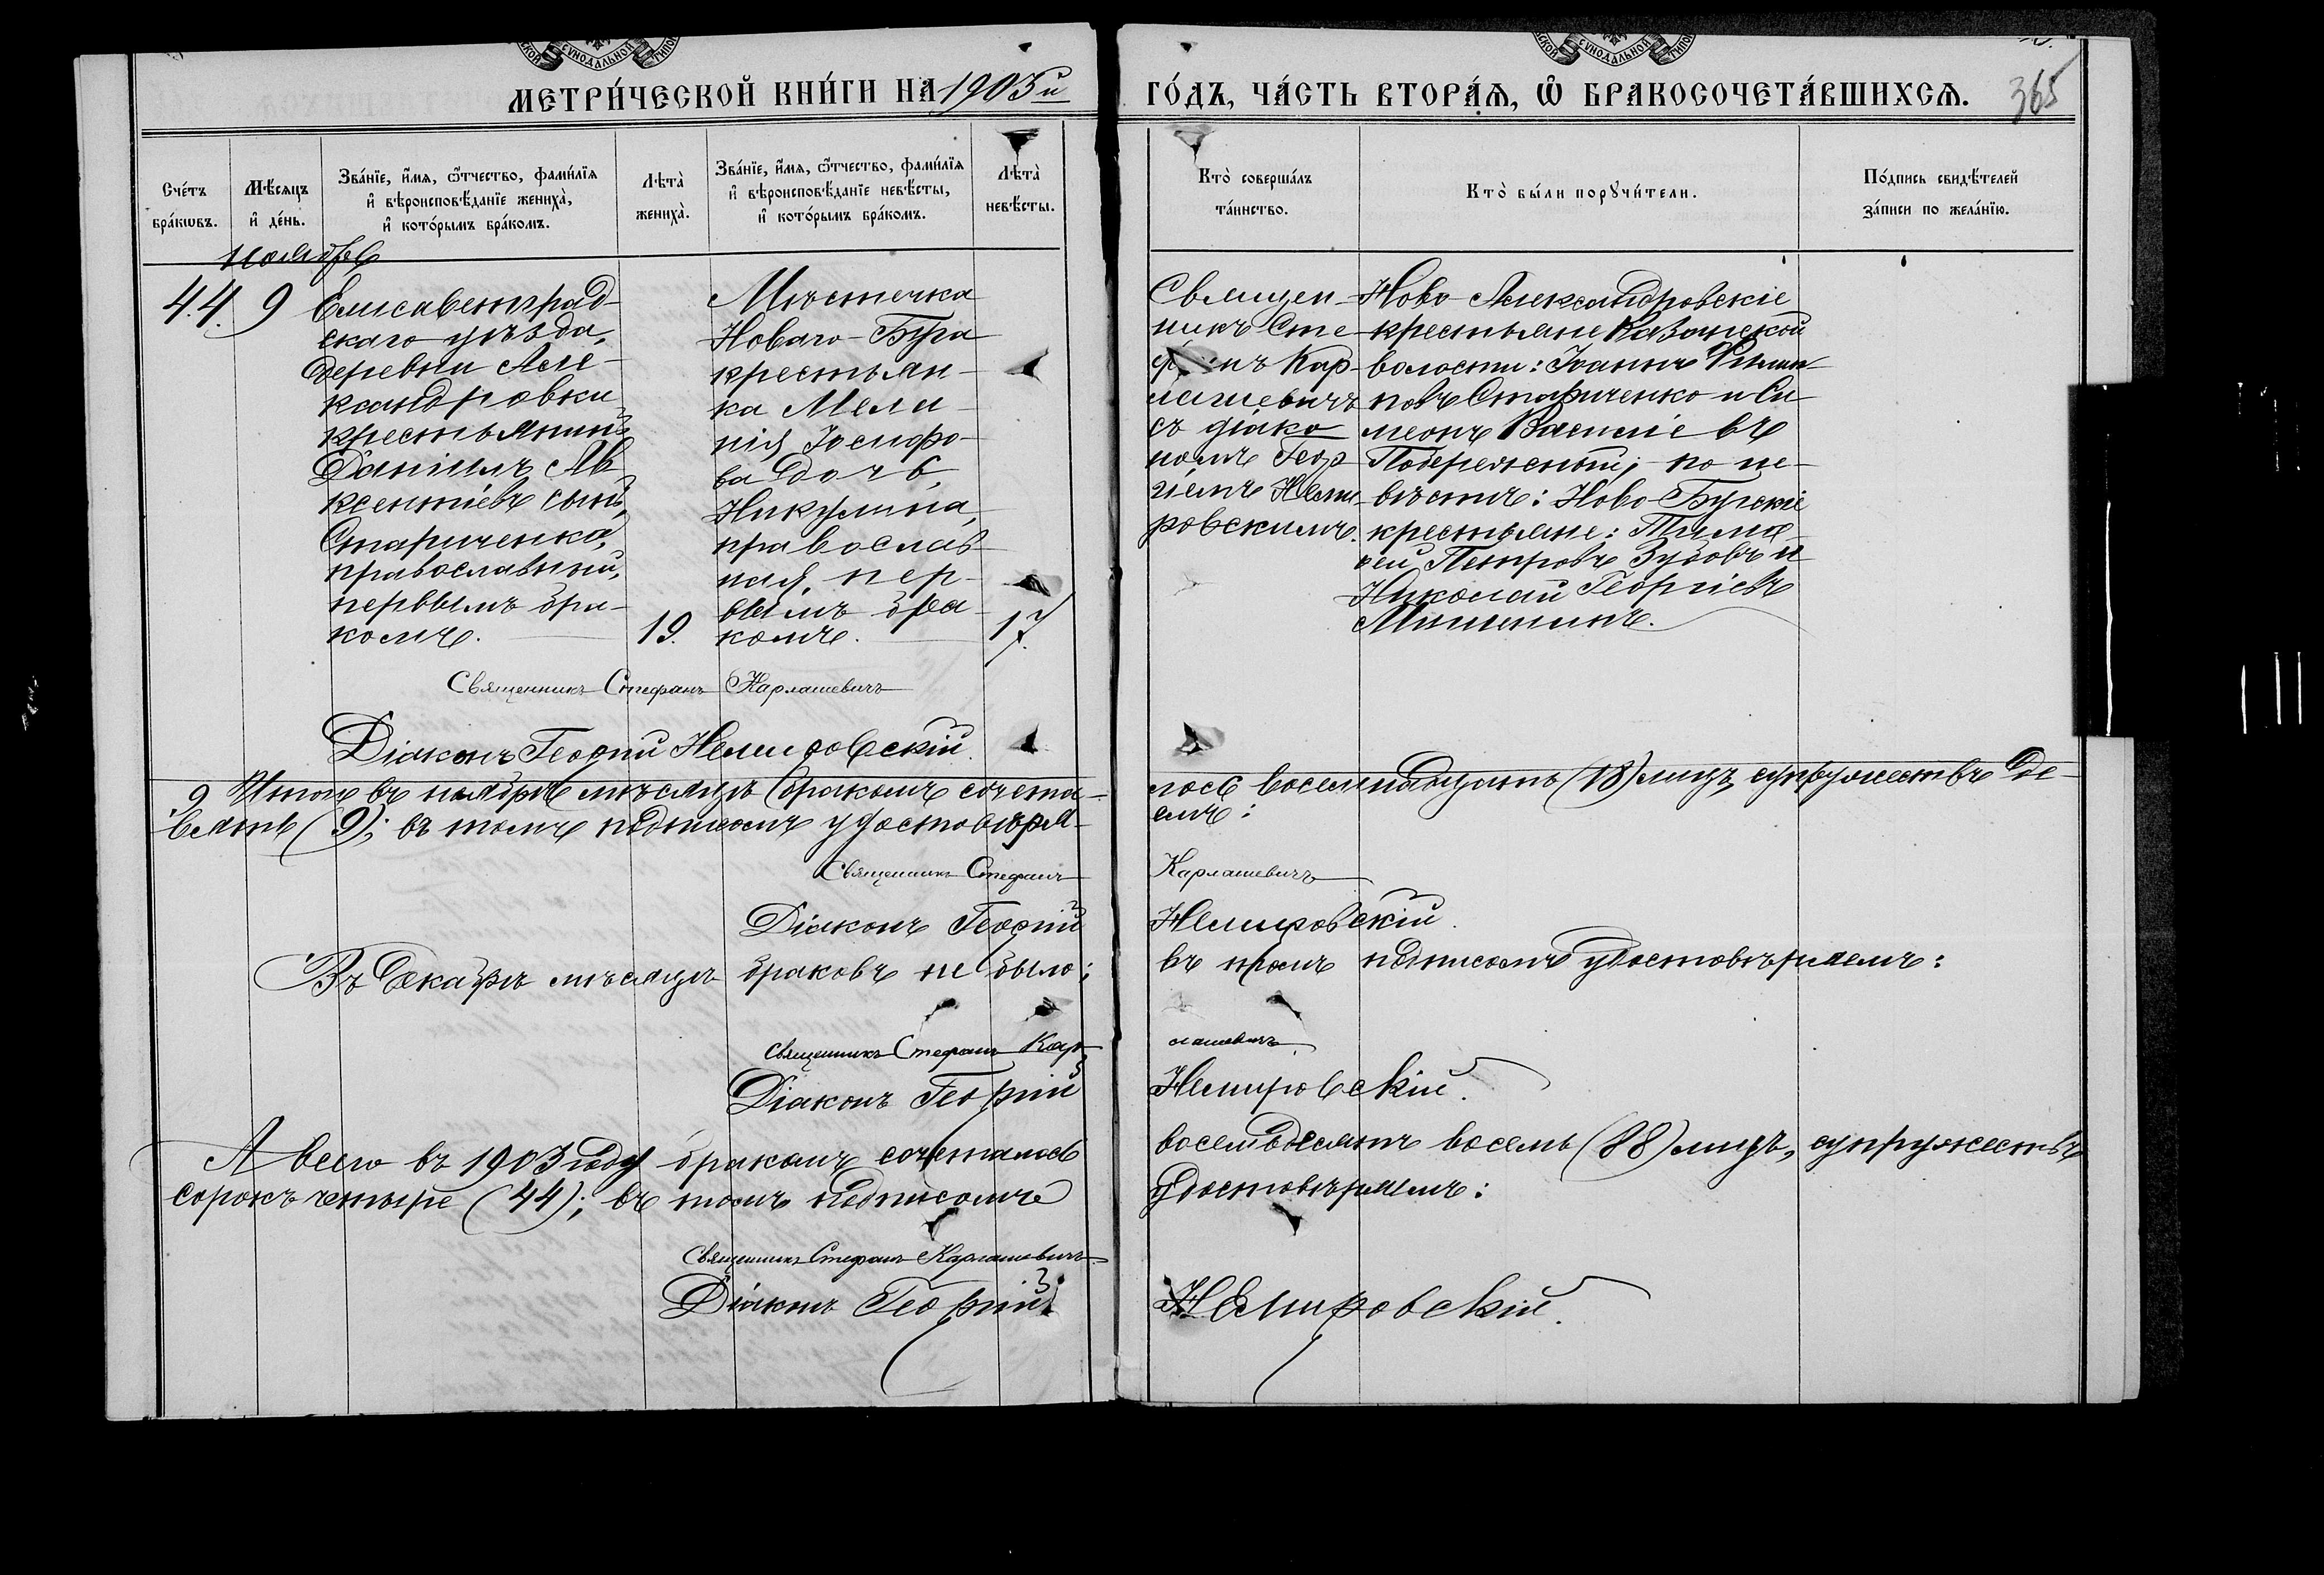 МЕТРИ́ЧЕСКОЙ КНИ́ГИ НА 1903й
ГО́ДЪ, ЧА́СТЬ ВТОРА́Ѧ, Ѡ҆ БРАКОСОЧЕТА́ВШИХСѦ.
365
Сче́тъ бра́кѡвъ.
Мѣ́сѧцъ и҆ де́нь.
Зва́нїе, и҆́мѧ, ѻ҆́тчество, фами́лїѧ
и҆ вѣроисповѣ́данїе жениха̀,
и҆ кото́рымъ бра́комъ.
Лѣта̀ жениха̀.
Зва́нїе, и҆́мѧ, ѻ҆́тчество, фами́лїѧ
и҆ вѣроисповѣ́данїе невѣ́сты,
и҆ кото́рымъ бра́комъ.
Лѣта̀ невѣ́сты.
Кто̀ соверша́лъ та́инство.
Кто̀ бы́ли порꙋчи́тели.
По́дпись свидѣ́телей за́писи по жела́нїю.
Ноябрь
44. 9
Елисаветград-
скаго уѣзда,
деревни Але-
ксандровки
крестьянинъ
Даніилъ Ав-
ксентіевъ сынъ,
Стариченко,
православный,
первымъ бра-
комъ. 19.
Мѣстечка
Новаго-Буга
крестьян-
ка Мела-
нія Іосифо-
ва дочь,
Никулина,
православ-
ная, пер-
вымъ бра-
комъ. 17.
Священ-
никъ Сте-
фанъ Кар-
лашевичъ
съ діако-
номъ Геор-
гіемъ Неми-
ровскимъ.
Ново-Александровскіе
крестьяне Казанской
волости: Іоаннъ Филип-
повъ Стариченко и Си-
меонъ Василіевъ
по не-
вѣстѣ: Ново-Бугскіе
крестьяне: Тимо-
фей Петровъ Зубовъ и
Николай Георгіевъ
Священникъ Стефанъ Карлашевичъ
Діаконъ Георгій Немировскій.
Итого въ ноябрѣ мѣсяцѣ бракомъ сочета-
лось восемнадцать (18) лицъ, супружествъ де-
вять (9); въ томъ подписомъ удостовѣря-
емъ:
Священникъ Стефанъ Карлашевичъ
Діаконъ Георгій Немировскій.
Въ декабрѣ мѣсяцѣ браковъ не было; въ чомъ подписомъ удостовѣряемъ:
Священникъ Стефанъ Карлашевичъ
Діаконъ Георгій Немировскій.
А всего въ 1903 году бракомъ сочеталось восемьдесятъ восемь (88) лицъ, супружествъ
сорокъ четыре (44); въ томъ подписомъ удостовѣряемъ:
Священникъ Стефанъ Карлашевичъ
Діаконъ Георгій Немировскій.